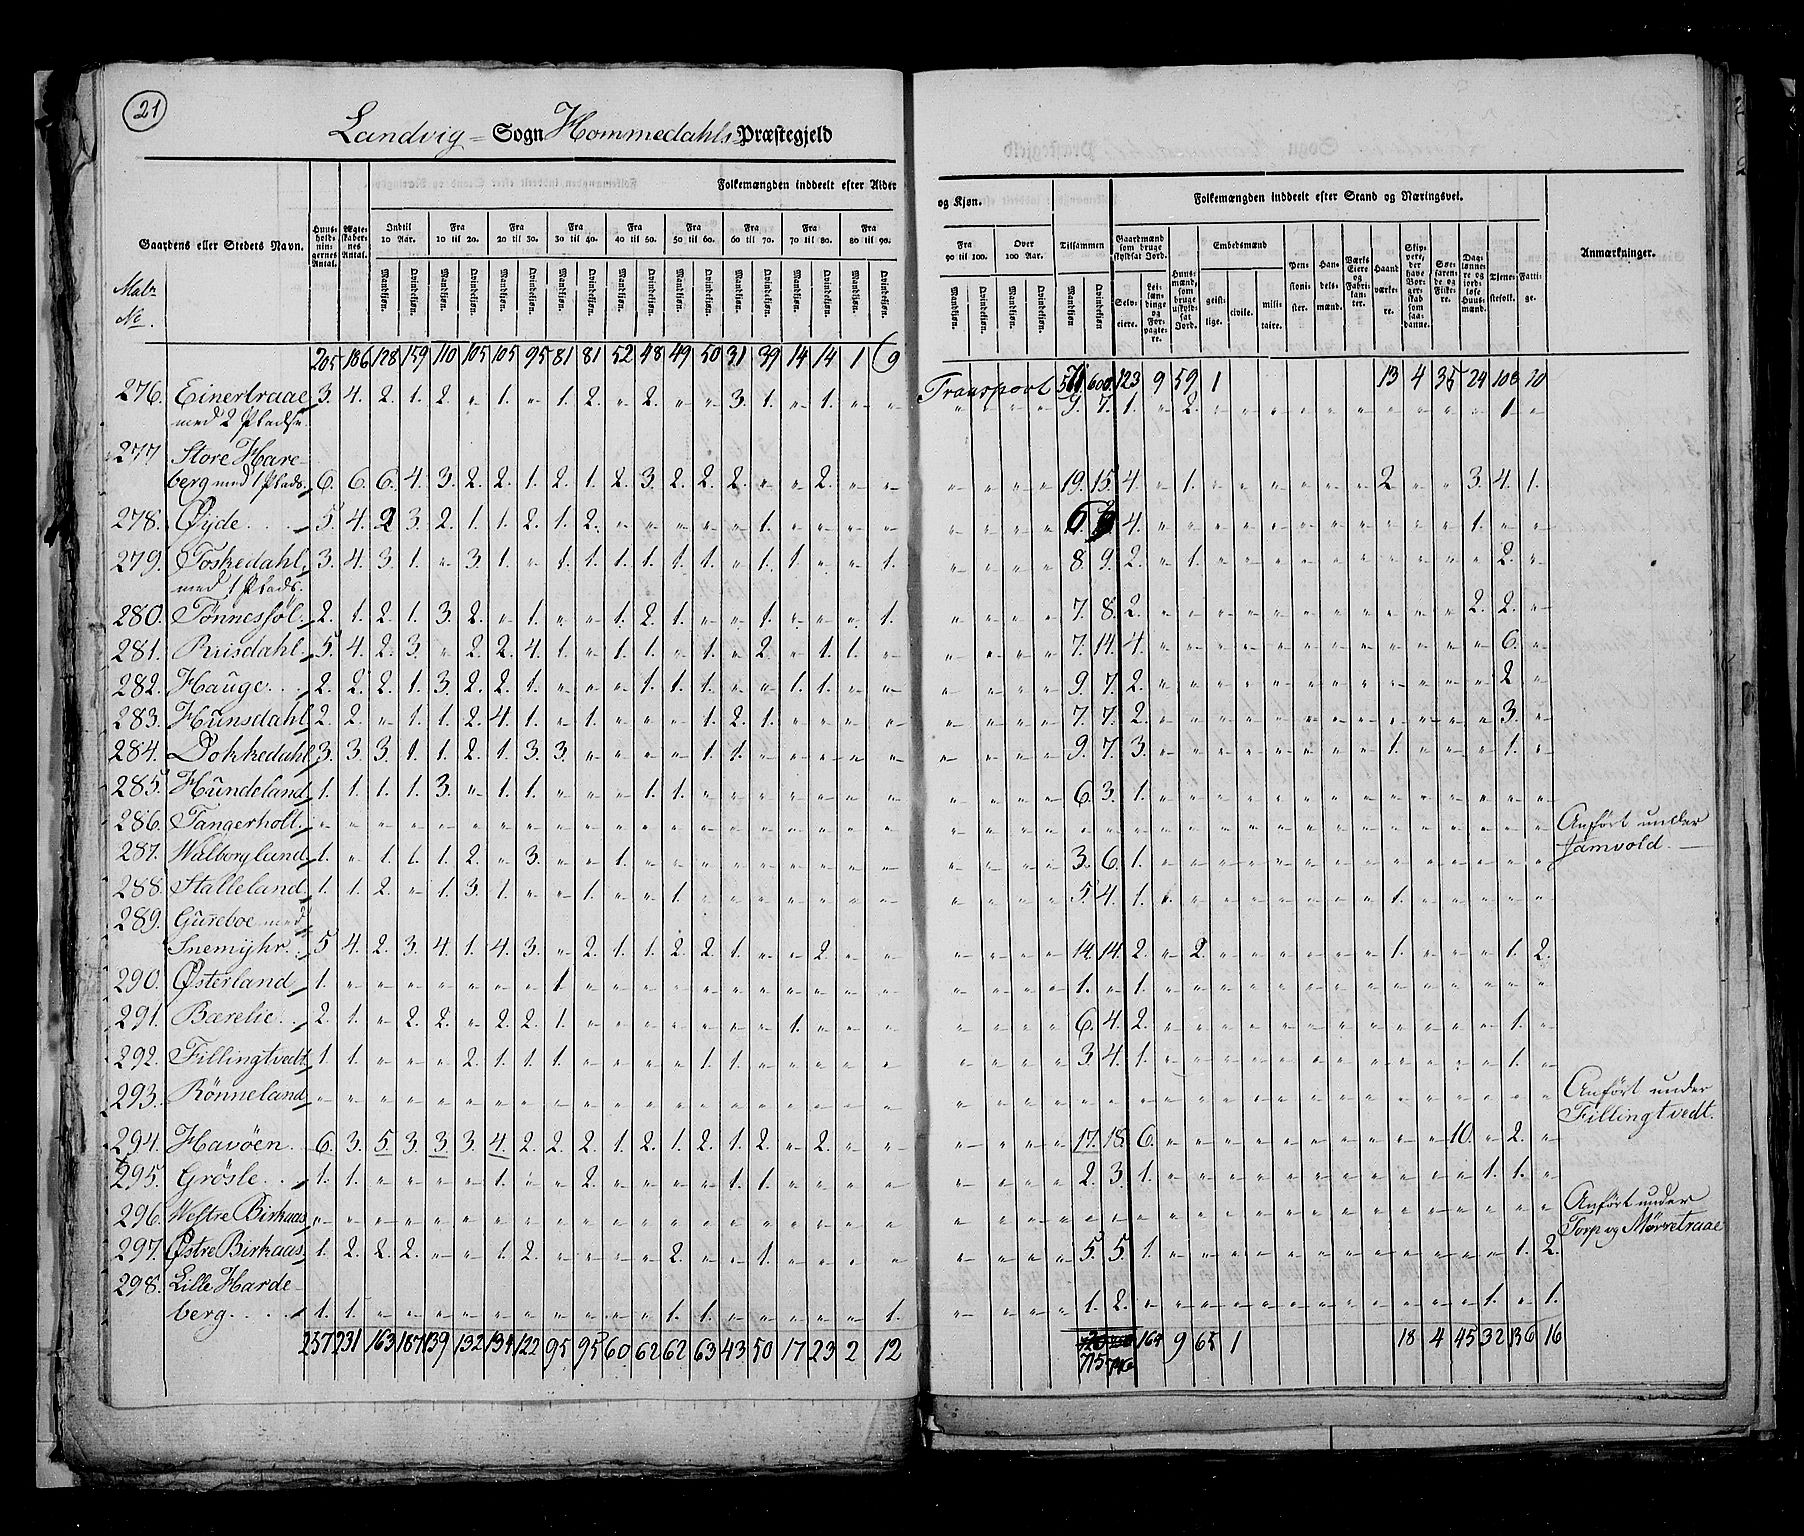 21
Landvig = Sogn Hommedahls Præstegjeld
Folkemængden inddeelt efter Alder
og Kjøn.
Folkemængden inddeelt efter Stand og Næringsvei.
Gaardens eller Stedets Navn.
Matr No
Huusholdningernes Antal.
Ægteskabernes Antal.
Indtil 10 Aar.
Fra 10 til 20.
Fra 20 til 30.
Fra 30 til 40.
Fra 40 til 50.
Fra 50 til 60.
Fra 60 til 70.
Fra 70 til 80.
Fra 80 til 90.
Fra 90 til 100.
Over 100 Aar.
Tilsammen
Mandkjøn. Qvindekjøn.
Gaardmænd som bruge skyldsat Jord.
Selveiere.
Leilændinge og Forpagtere.
Huusmænd, som bruge uskyldsat Jord.
Embedsmænd
geistlige. civile. militaire.
Pensionister.
Handelsmænd.
Værks Eiere og Fabrikanter.
Haandværkere.
Skippere, der have Borgerskab som saadanne.
Søefarende og Fiskere.
Daglønnere og jordløse Huusmænd.
Tjenestefolk.
Fattige.
Anmærkninger.
205 186 128 159 110 105 105 95 81 81 52 48 49 50 31 39 14 14 1 9 Transport 600 123 9 59 1 13 4 35 24 108 10
276. Einertraae 3. 4. 2. 1. 2. " 1. " 1. 2. " 2. " " 3. 1. " 1. " " 9. 7. 1. " 2. 1.
med 2 Pladse.
277 Store Hare-
berg med 1 Plads. 6. 6. 6. 4. 3. 2. 2. 1. 2. 1. 2. 3. 2. 2. 2. " " 2. " " 19. 15. 4. " 1. 2 3. 4. 1.
278. Øyde 5. 4. 2 3. 2. 1. 1. 2. 1. 2. " " " " " 1. " " " " 6 9 4. 1.
279. Toskedahl 3. 4. 3. 1. " 3. 1. " 1. 1. 1. 1. 1. 1. " 1. 1. " " 1. 8. 9. 2. " 1. 2.
med 1 Plads.
280. Tønnesføl 2. 1. 2. 1. 3. 2. " 1. " " 1. 2. 1. " " 1. " " " 1. 7. 8. 2. 2. 2.
281. Ruisdahl 5. 4. 2. 3. " 2. 2. 4. 1. " 1. 1. " 1. " 2. " 1. 1. " 7. 14. 4. 6.
282. Hauge 2. 2. 2. 1. 3. 2. 2. 1. " " " 1. 1. 1. " " 1. 1. " " 9. 7. 2. 2
283. Hunsdahl 2. 2. " 1. 1. 2. 4. 1. " 1. " " " 1. 2. 1. " " " " 7. 7. 2. 3.
284. Dokkedahl 3. 3. 3. 1. 1. 2. 1. 3. 3. " " " " 1. 1. " " " " " 9. 7. 3. 1. 1.
285. Hundeland 1. 1. 1. 1. 3. " 1. 1. " " " 1. 1. " " " " " " " 6. 3. 1.
286. Tangerholt Anført under
Jamvold.
287. Walborglund 1. " 1. 1. 1. 2. " 3. " " 1. " " " " " " " " " 3. 6. 1.
288. Stalleland 1. 1. 2. " 1. 3. 1. " " 1. " " 1. " " " " " " " 5. 4. 1. 1.
289. Guseboe med
Snemyhr 5 4. 2. 3. 4. 1. 4. 3. " 2. 1. 1. 2. 2. 1. " " 2. " " 14. 14. 2. " 2. 1. 1. 2.
290. Østerland 1. " " " " " " " 1 " " " " " " " " " " " 1. " 1.
291. Bærelie 2. 1. " 2. 2. " 2. 2. 1. " " " " " " " 1. " " " 6. 4. 2. 1.
292. Fillingtvedt 1. 1. " " " 2. 1. 1. 1. " " " " 1. 1. " " " " " 3. 4. 1. 1.
293. Rönneland Anført under
Fillingtvedt.
294. Havöen 6. 3. 5. 3. 3. 3. 4. 2. 2. 2. 1. 2. 1. 2. 1. 2. " 2. " " 17. 18. 6. 10. " 2.
295. Grösle 1. 1. " " " " 1. " " 2. " " " " 1. 1. " " " " 2. 3. 1. 1. 1.
296. Westre Birkaas Anført under
Torp og Mörretraae
297. Østre Birkaas 1. 2. 2. 2. " " 1. 2. " " " " 2. " " 1. " " " " 5. 5. 1. 1. 2.
298. Lille Harde-
berg 1. 1. " " " " " " " " " " 1. 1. " " " " " 1. 1. 2. 1. " 1.
257 231 163 187 139 132 134 122 95 95 60 62 62 63 43 50 17 23 2 12 164 9 65 1 18 4 45 32 136 16
715 746